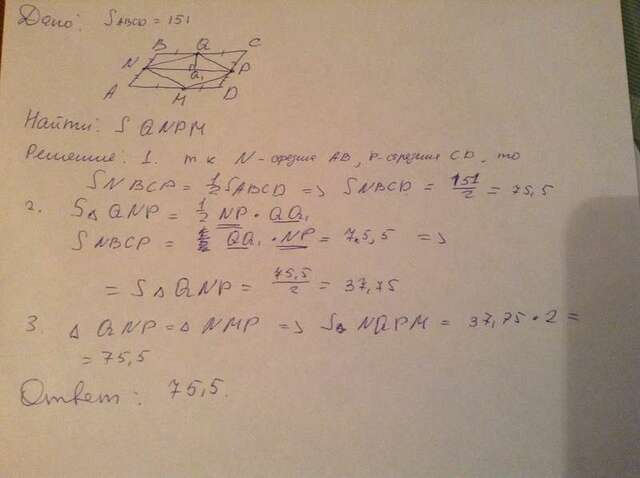 Дано: SABCD = 151
B Q C
N Q₁ P
A M D
Найти: S QNPM
Решение: 1. т к N-середина AB, P-середина CD, то
SNBCP = 1/2 SABCD => SNBCD = 151/2 = 75,5
2. S△ QNP = 1/2 NP · QQ₁
SNBCP = QQ₁ · NP = 75,5 =>
= S△ QNP = 75,5/2 = 37,75
3. △ QNP = △ NMP => S△ NQPM = 37,75 · 2 =
= 75,5
Ответ: 75,5.